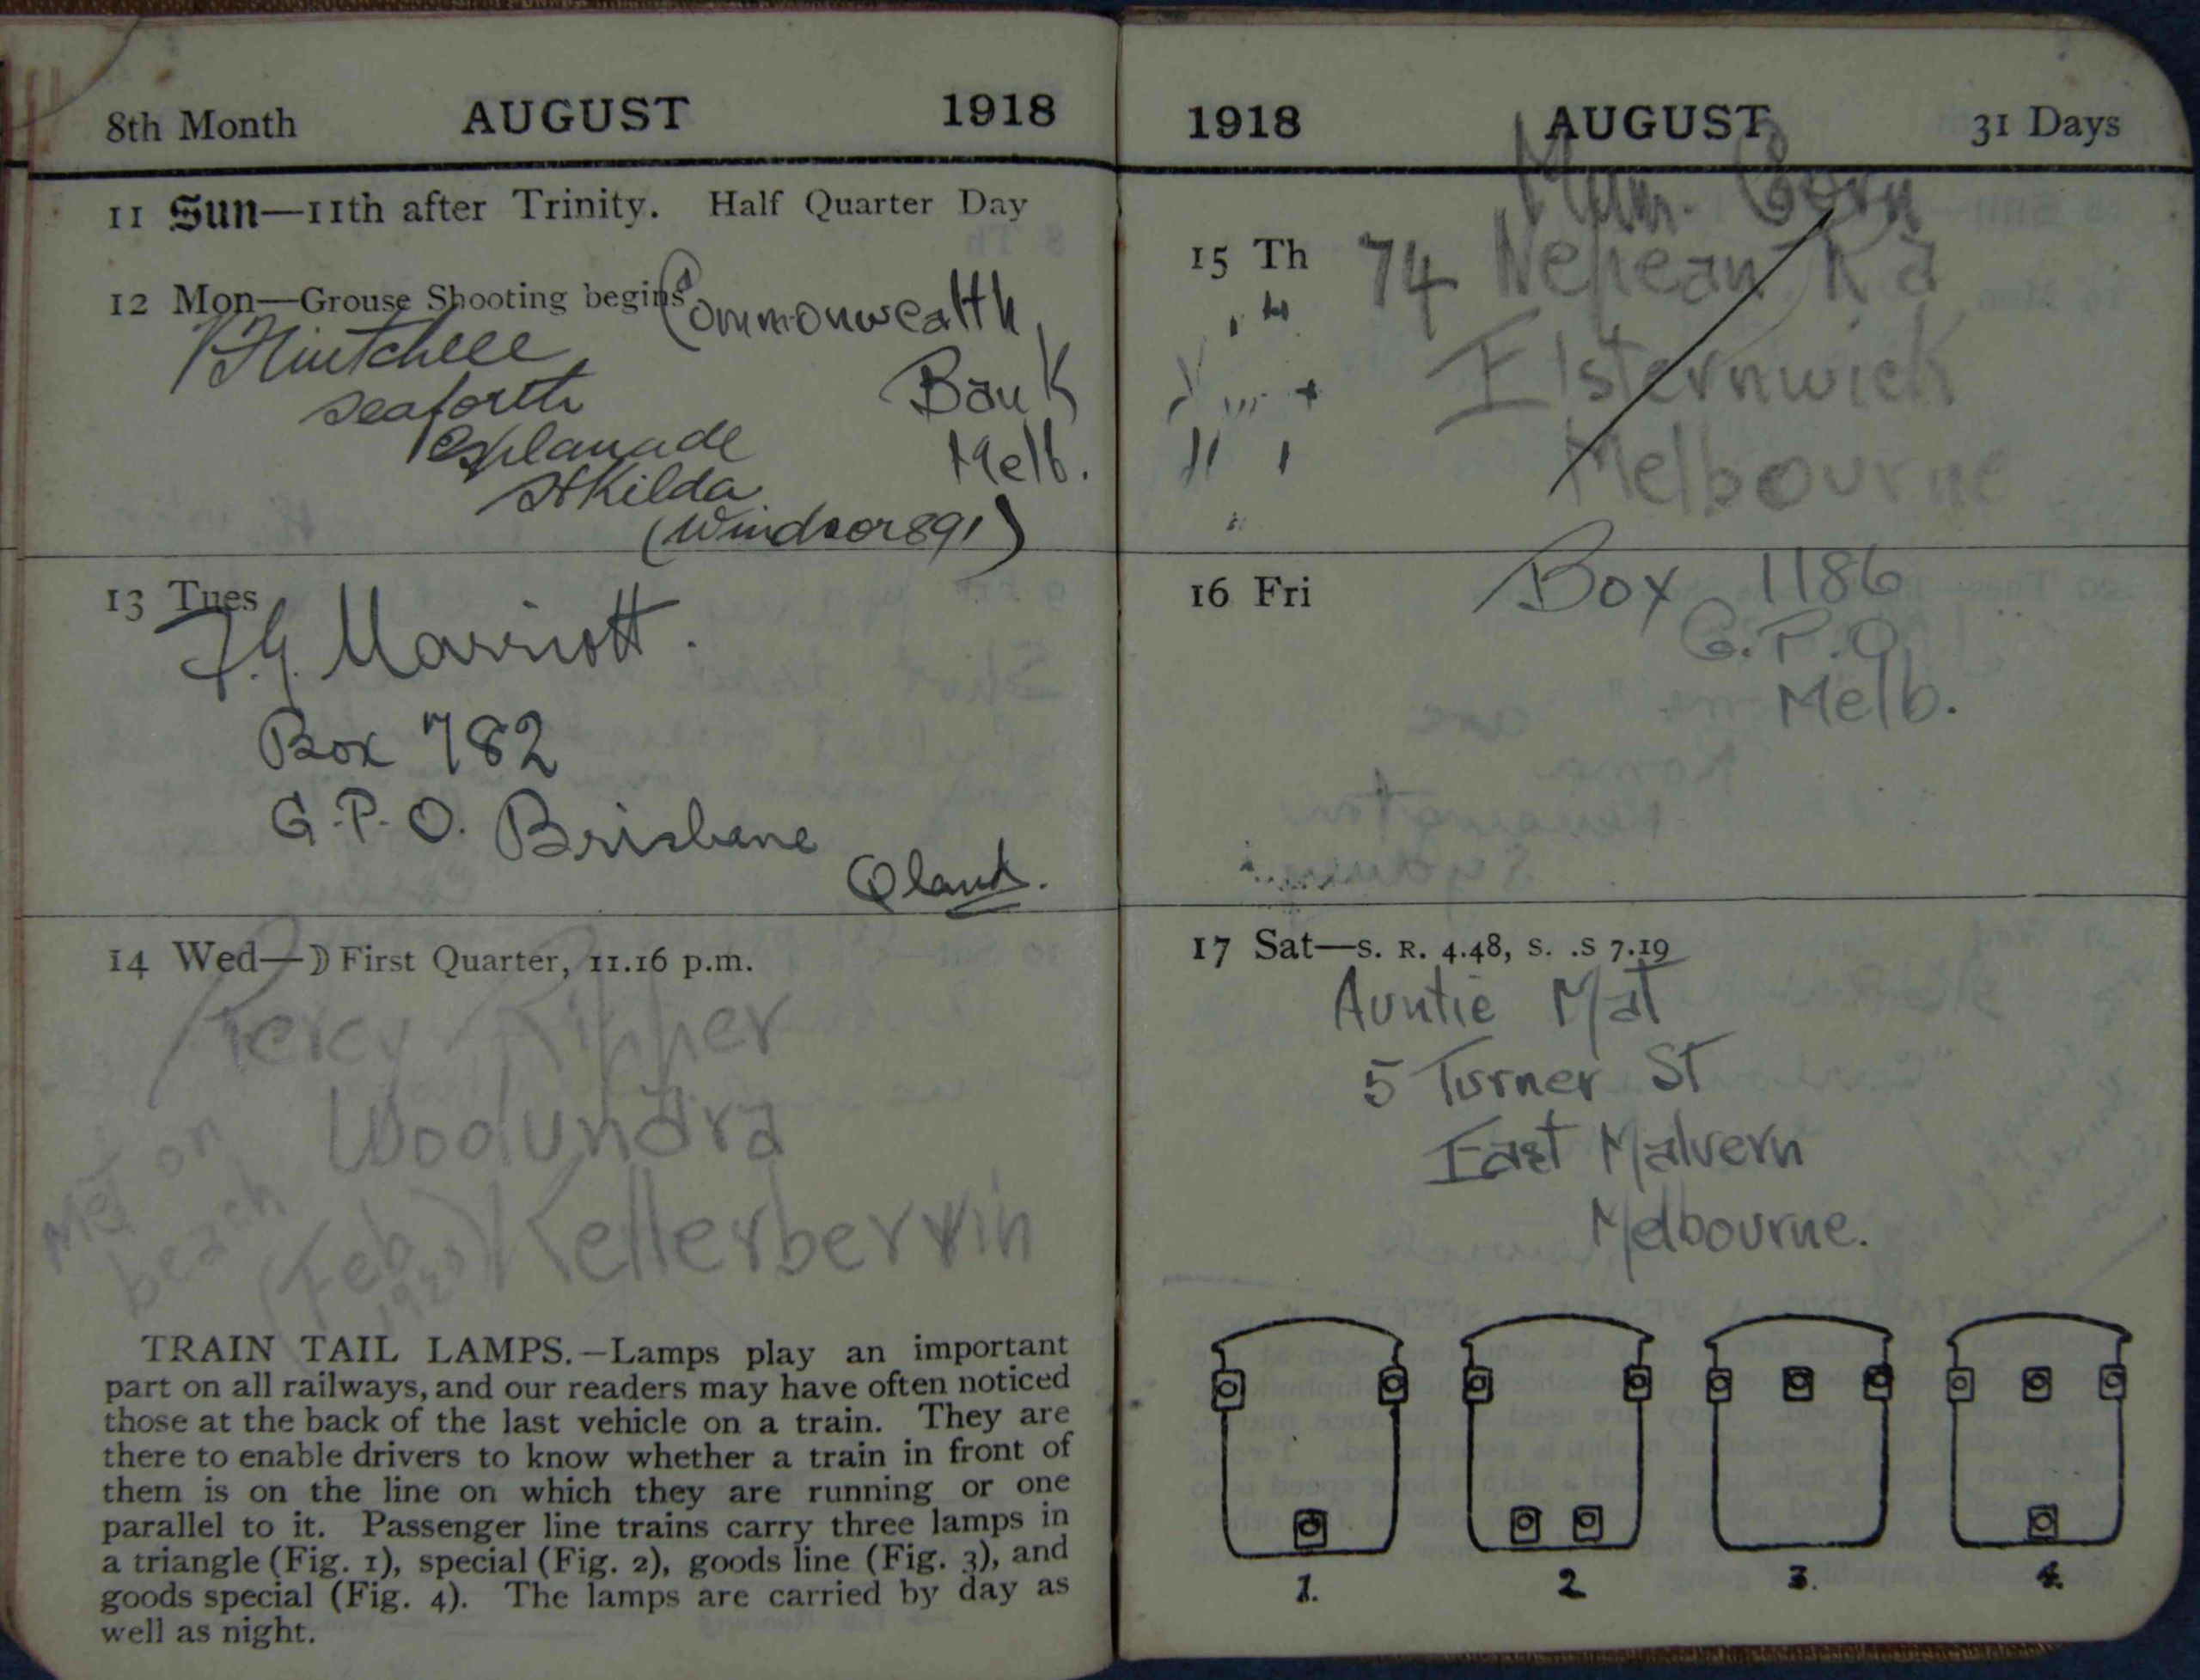 8th Month AUGUST 1918
11 Sun—11th after Trinity. Half Quarter Day
12 Mon—Grouse Shooting begins
Commonwealth
Bank
Melb.
Seaforth
Esplanade
St Kilda
(Windsor 891)
13 Tues
F.G. Marriott.
Box 782
G.P.O. Brisbane
Qland.
14 Wed—☽ First Quarter, 11.16 p.m.
Percy Kipper
Woolundra
Kellerberrin
Met on
beach
(Feb
TRAIN TAIL LAMPS.—Lamps play an important
part on all railways, and our readers may have often noticed
those at the back of the last vehicle on a train. They are
there to enable drivers to know whether a train in front of
them is on the line on which they are running or one
parallel to it. Passenger line trains carry three lamps in
a triangle (Fig. 1), special (Fig. 2), goods line (Fig. 3), and
goods special (Fig. 4). The lamps are carried by day as
well as night.
1918 AUGUST 31 Days
Mum.
15 Th
74 Nepean Rd
Elsternwick
Melbourne
16 Fri
Box 1186
G.P.O.
Melb.
17 Sat—S. R. 4.48, S. .S 7.19
Auntie Mat
5 Turner St
East Malvern
Melbourne.
1. 2 3. 4.